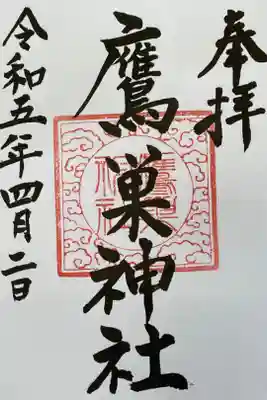 奉拝
鷹巣神社
令和五年四月二日